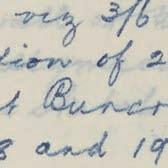 viz 3/6
tion of 2
t Buncr
8 and 19